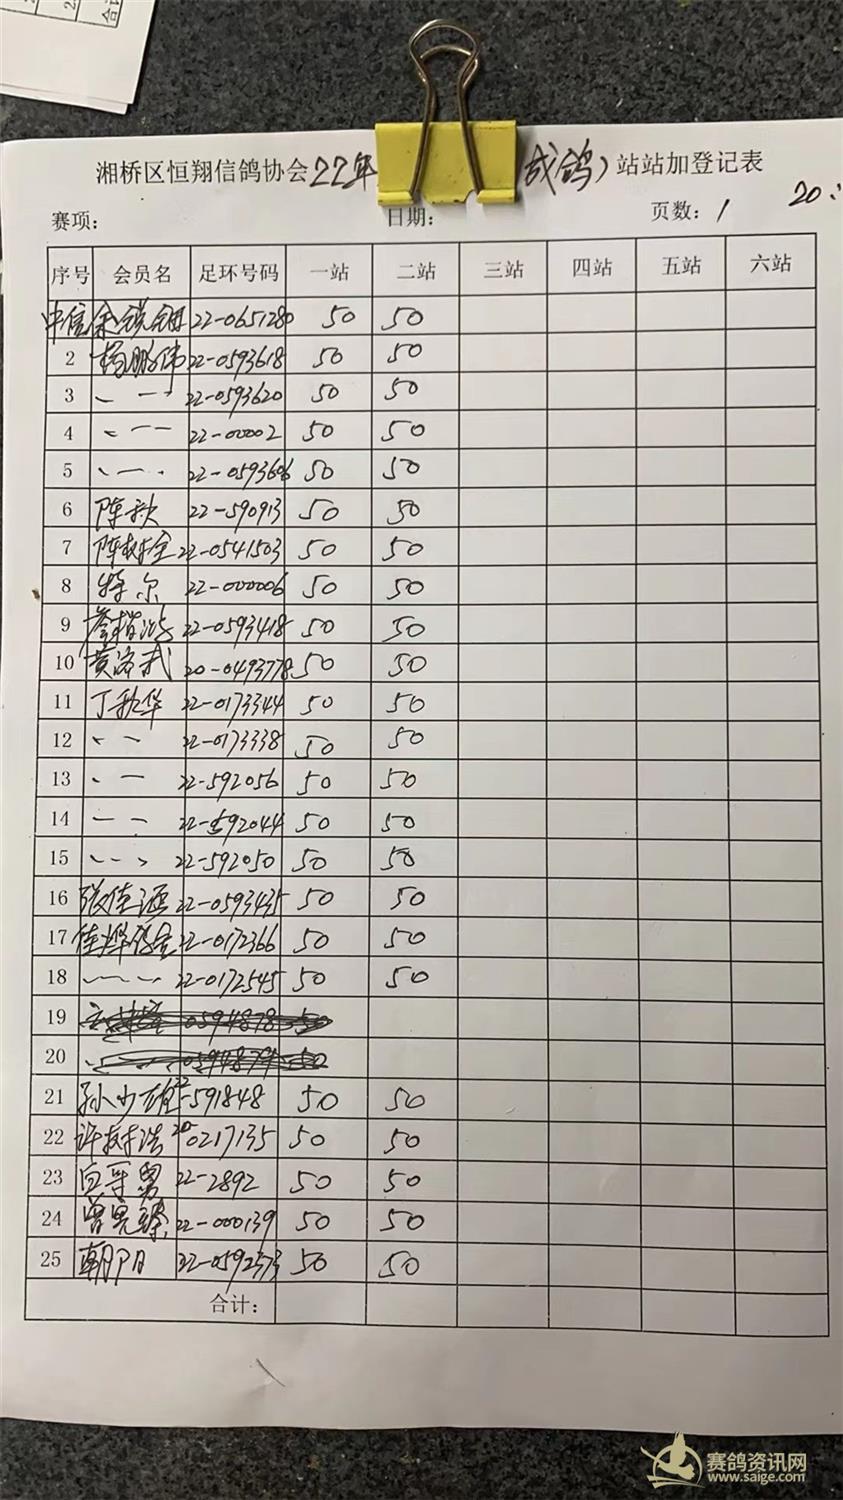 合计
湘桥区恒翔信鸽协会22年 成鸽) 站站加登记表
赛项: 日期: 页数: 1 20
序号 会员名 足环号码 一站 二站 三站 四站 五站 六站
中信 余锐钿 22-0651280 50 50
2 杨鹏伟 22-0593618 50 50
3 22-0593620 50 50
4 22-00002 50 50
5 22-0593606 50 50
6 陈秋 22-590913 50 50
7 陈树全 22-0541503 50 50
8 特尔 22-000006 50 50
9 22-0593418 50 50
10 黄洛武 20-0493778 50 50
11 丁秋华 22-0173344 50 50
12 22-0173338 50 50
13 22-592056 50 50
14 22-592044 50 50
15 22-592050 50 50
16 张佳涵 22-0593435 50 50
17 佳烨 22-0172366 50 50
18 22-0172545 50 50
19 0594878 50
20 0594879 50
21 孙少雄 22-591848 50 50
22 许树浩 20 0217135 50 50
23 22-2892 50 50
24 曾宪臻 22-000139 50 50
25 朝阳 22-0592373 50 50
合计:
赛鸽资讯网
www.saige.com